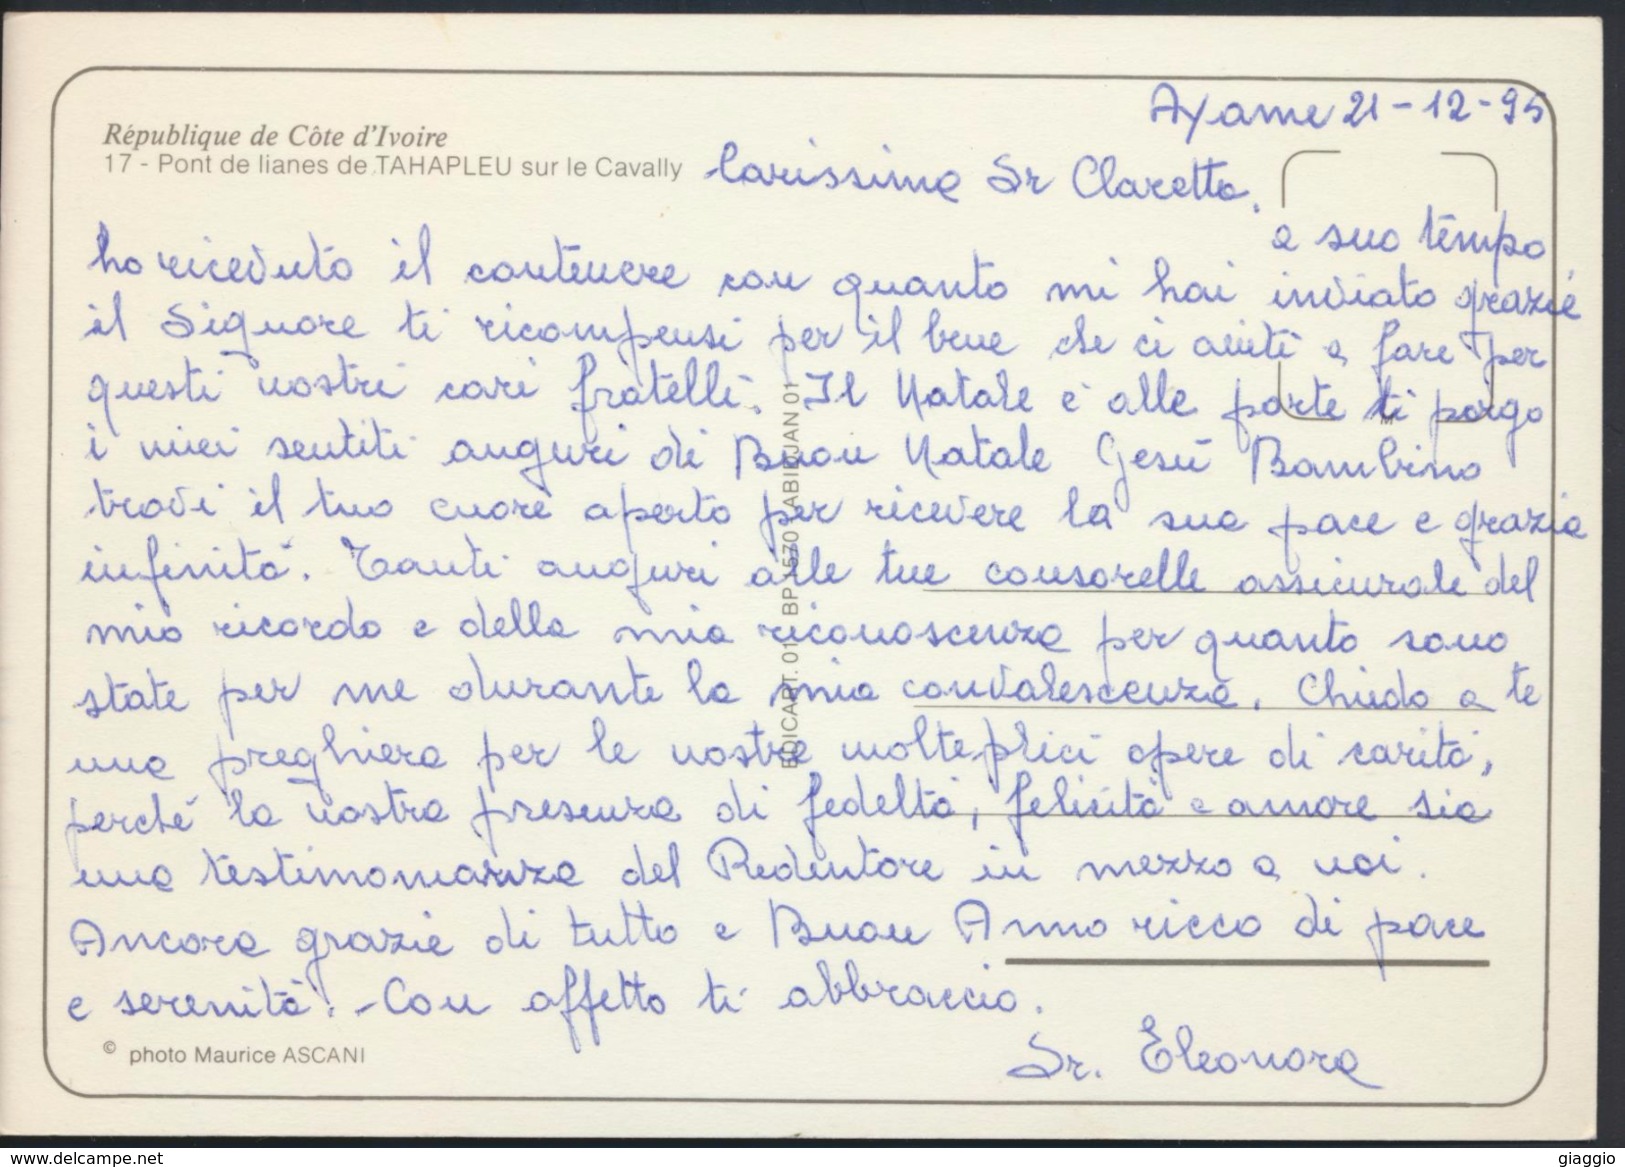 Ayame 21-12-95
République de Côte d'Ivoire
17 - Pont de lianes de TAHAPLEU sur le Cavally
Carissima Sr Claretta,
a suo tempo
ho ricevuto il contenere con quanto mi hai inviato grazie
il Signore ti ricompensi per il bene che ci aiuti a fare per
questi nostri cari fratelli. Il Natale è alle porte ti porgo
i miei sentiti auguri di Buon Natale Gesù Bambino
trovi il tuo cuore aperto per ricevere la sua pace e grazia
infinita. Tanti auguri alle tue consorelle assicurale del
mio ricordo e della mia riconoscenza per quanto sono
state per me durante la mia convalescenza. Chiedo a te
una preghiera per le nostre molteplici opere di carità,
perché la nostra presenza di fedeltà, felicità e amore sia
una testimonianza del Redentore in mezzo a noi.
Ancora grazie di tutto e Buon Anno ricco di pace
e serenità! - Con affetto ti abbraccio.
Sr. Eleonora
© photo Maurice ASCANI
EDICART. 01 BP 1570 ABIDJAN 01
www.delcampe.net
giaggio